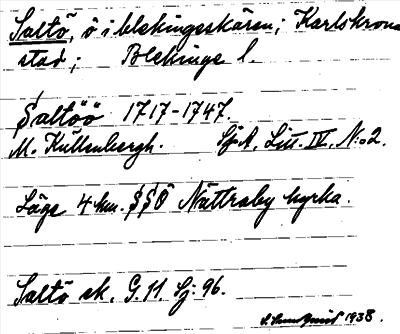 Saltö, ö i blekingeskären; Karlskrona
stad; Blekinge l.
Saltöö 1717-1747.
M. Küllenbergh. Sj.A. Litt. IV. N:o 2.
Läge 4 km. SSÖ Nättraby kyrka.
Saltö sk. G.11. Sj: 96.
1938.